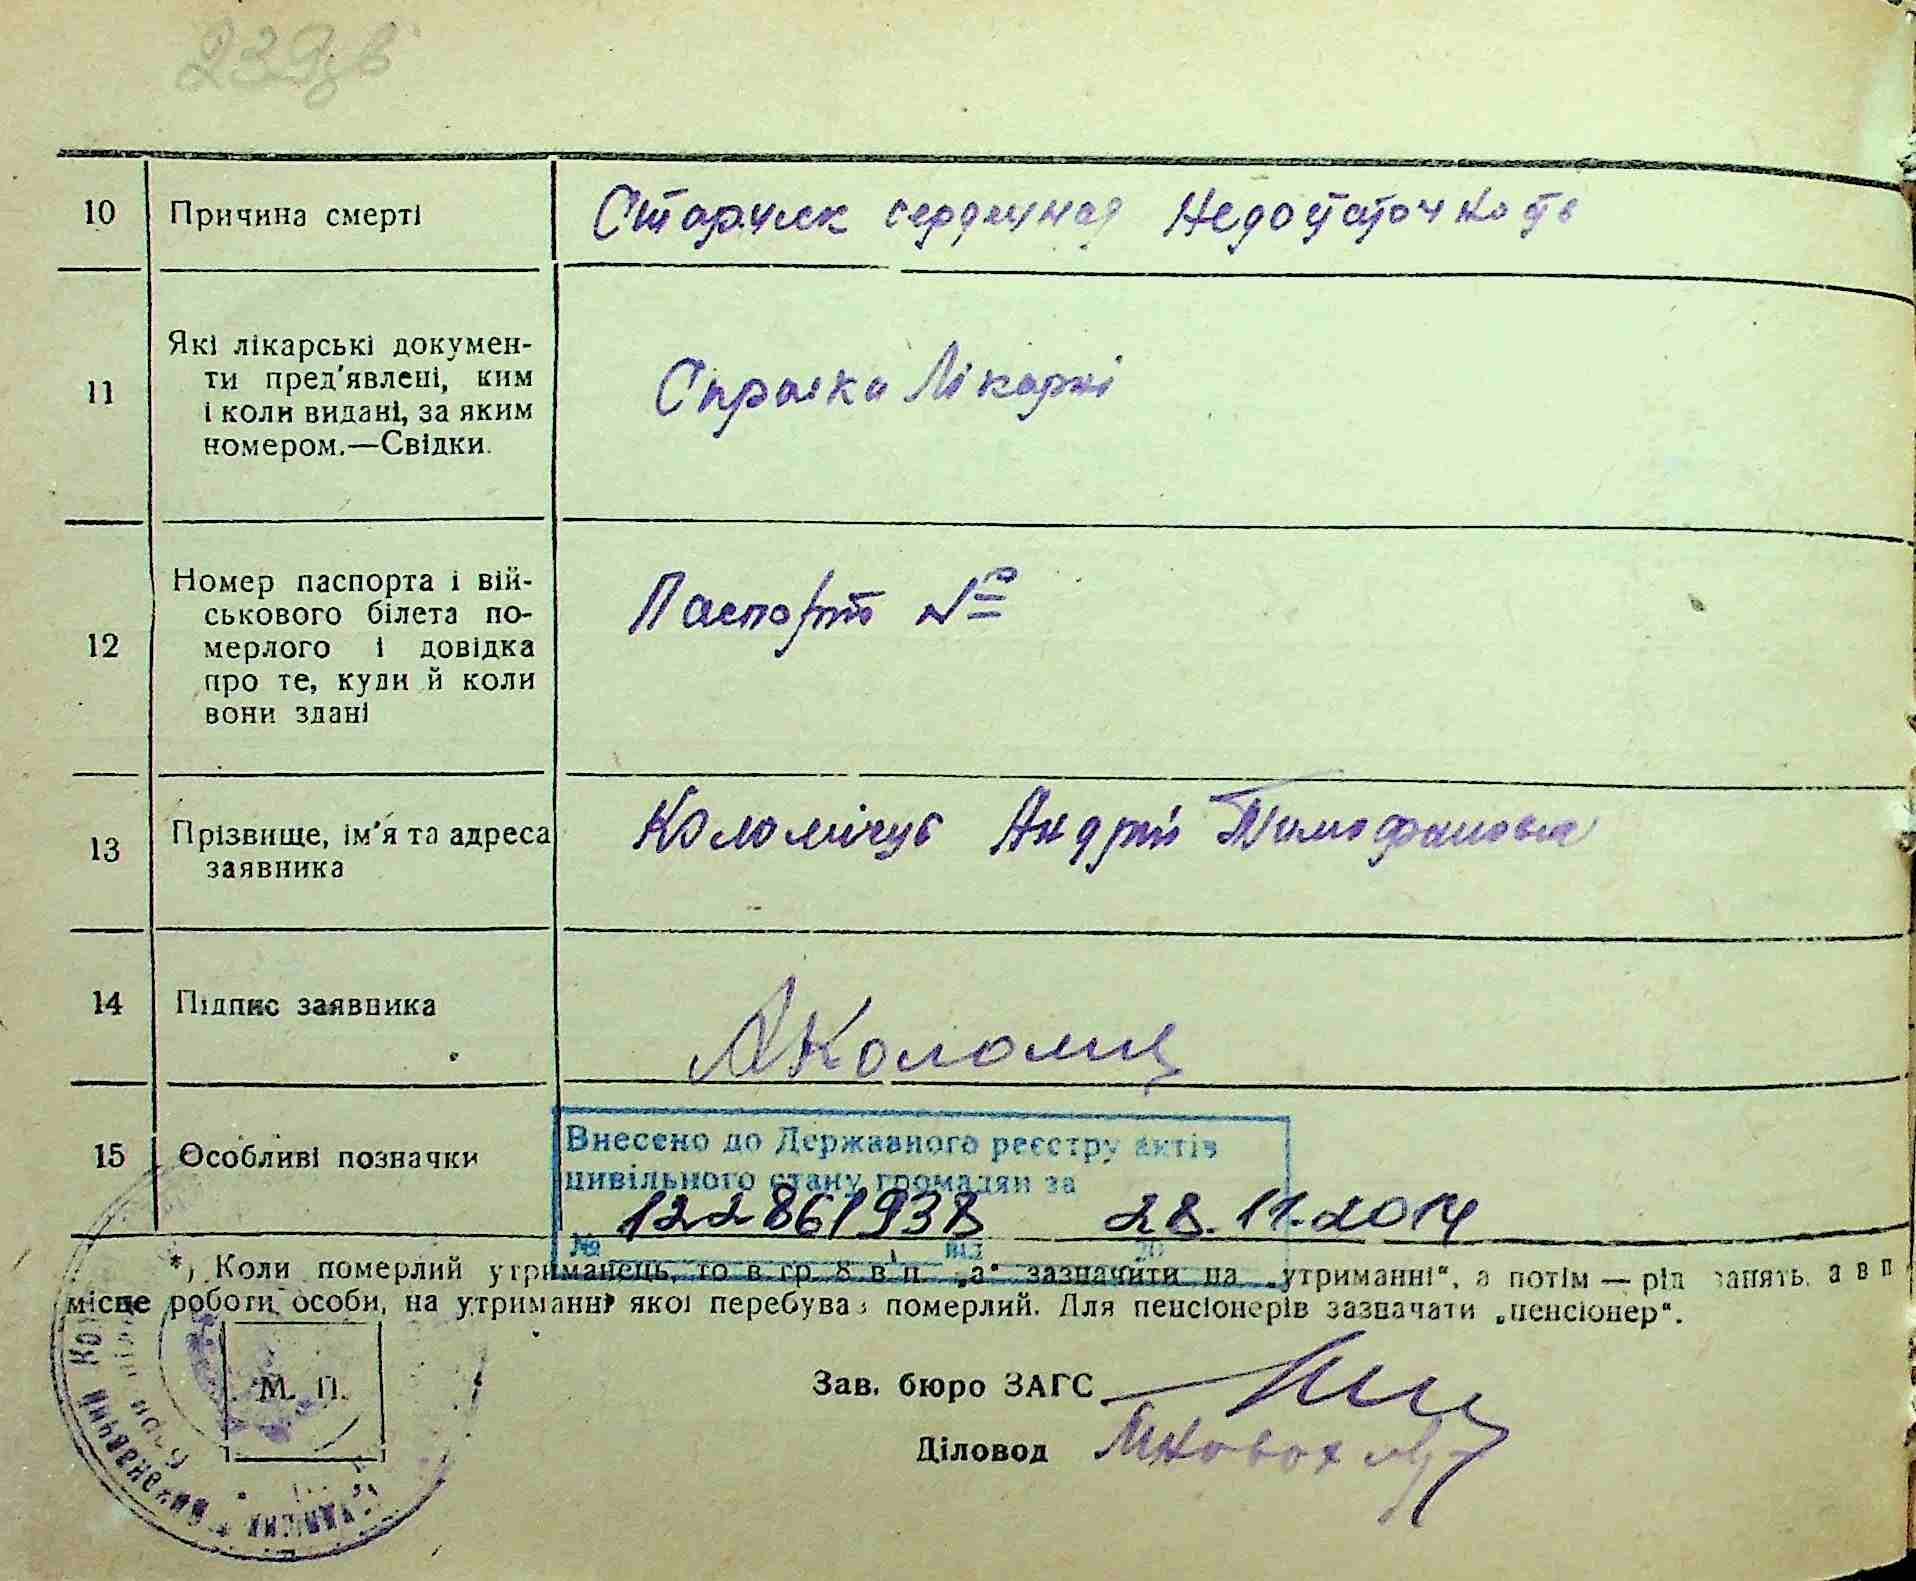 239зв
10 Причина смерті Старческ сердечная Недостаточность
11 Які лікарські докумен-
ти пред'явлені, ким
і коли видані, за яким
номером.—Свідки.
Справка Лікарні
12 Номер паспорта і вій-
ськового білета по-
мерлого і довідка
про те, куди й коли
вони здані
Паспорт №
13 Прізвище, ім'я та адреса
заявника
Коломієць Андрій
14 Підпис заявника АКоломиц
15 Особливі позначки
Внесено до Державного реєстру актів
цивільного стану громадян за
№ 122861938 від 28.11.2014
*) Коли померлий утриманець, то в гр. 8 в п. „а“ зазначити на „утриманні“, а потім — рід занять, а в п.
місце роботи особи, на утриманні якої перебував померлий. Для пенсіонерів зазначати „пенсіонер“.
М. П.
Зав. бюро ЗАГС
Діловод